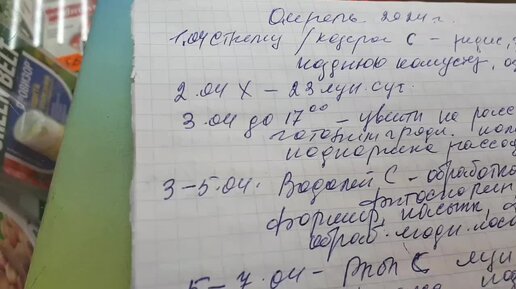 Апрель 2024 г.
1.04 стрелец / козерог С – редис,
позднюю капусту,
2.04 Х – 23 лун. сут.
3.04 до 17⁰⁰ – цветы на расс
готовим гряди.
подкормка рассад
3–5.04. Водолей С – обработка
фитоспорин
формир,
обраб.
5–7.04 – Рыбы С лун